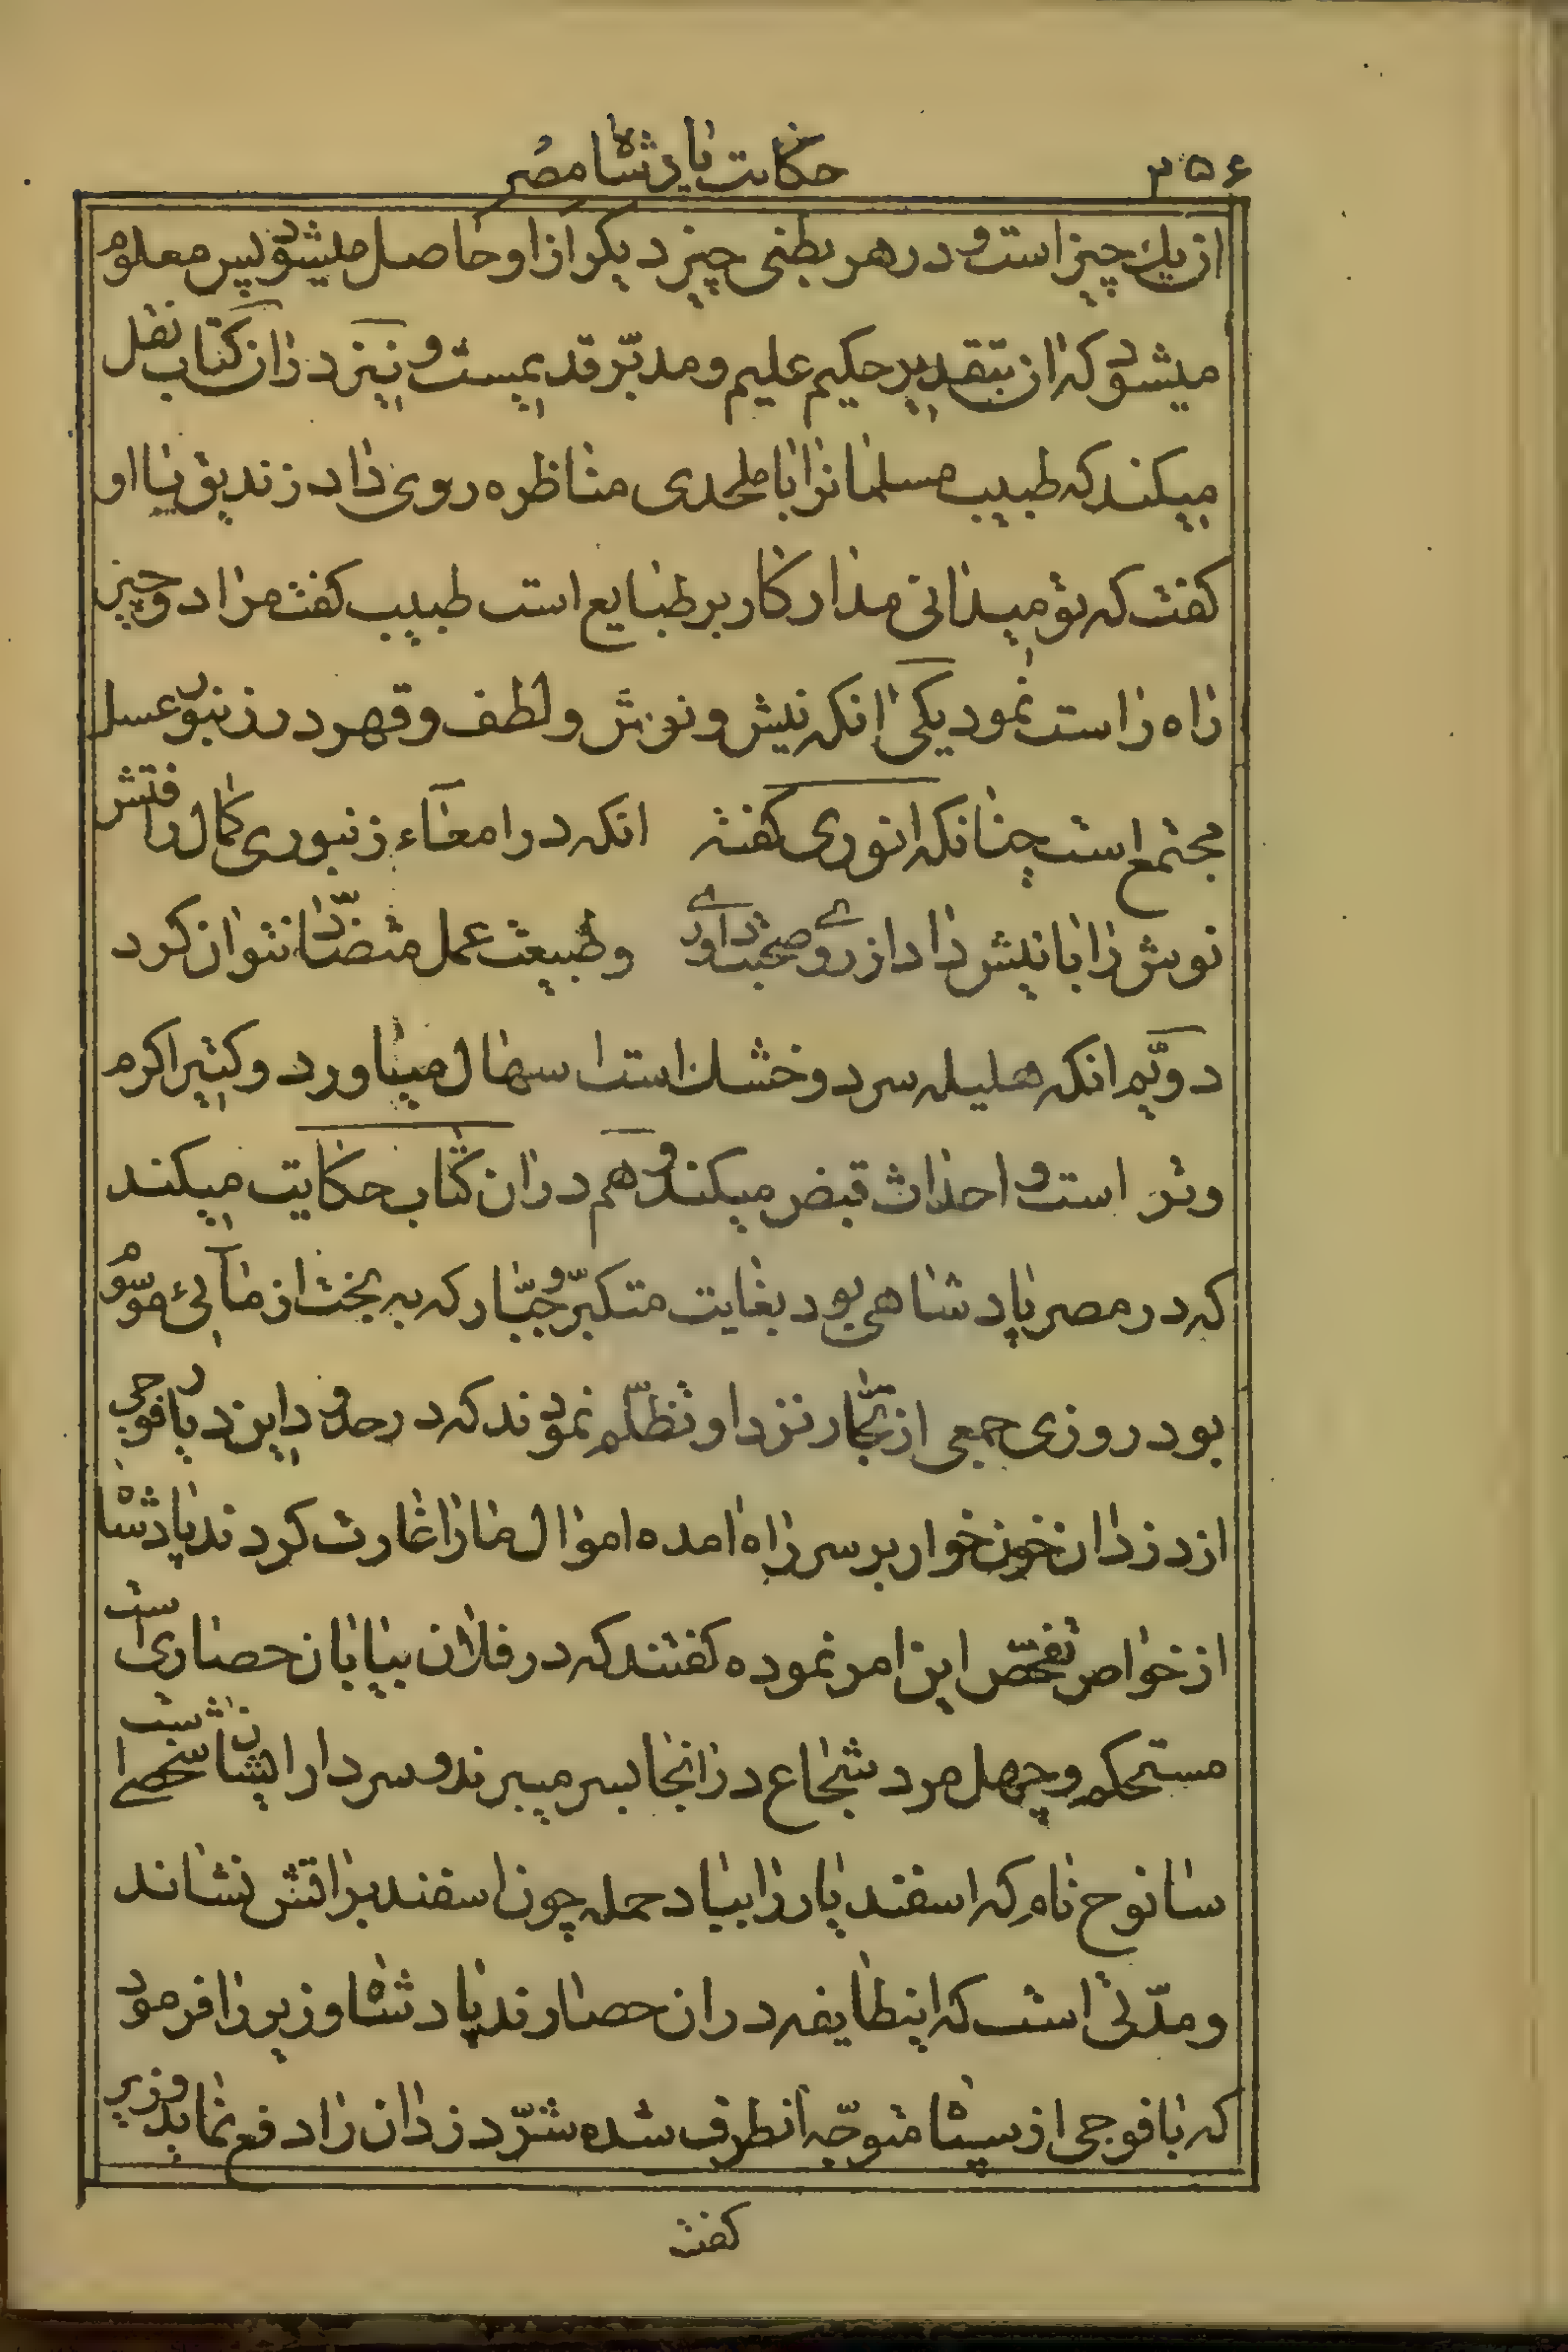 ۳۵۶
حکایت پادشاه مصر
از یك چیز است و در هر بطنی چیز دیکر از او حاصل میشود پس معلوم
میشود که ان بتقدیر حکیم علیم و مدبّر قدیمست و نیز در ان کتاب نقل
میکند که طبیب مسلمانرا با ملحدی مناظره روی داد زندیق با او
کفت که تو میدانی مدار کار بر طبایع است طبیب کفت مرا دو چیز
راه راست نمود یکی انکه نیش و نوش و لطف و قهر در زنبور عسل
مجتمع است چنانکه انوری کفته انکه در امعاء زنبوری کمال رافتش
نوش را با نیش داد از روی صحبت داوری وطبیعت عمل متضادّ نتوان کرد
دویّم انکه هلیله سرد و خشك است اسهال میاورد و کتیرا کرم
وتر است و احداث قبض میکند و هم در ان کتاب حکایت میکند
که در مصر پادشاهی بود بغایت متکبّر و جبّار که به بخت از مابی موسوم
بود روزی جمعی از تجّار نزد او تظلّم نمودند که در حدود این دیار فوجی
از دزدان خون خوار بر سر راه امده اموال مارا غارت کردند پادشاه
از خواص تفحّص این امر نموده کفتند که در فلان بیابان حصاری است
مستحکم و چهل مرد شجاع در انجا بسر میبرند و سردار ایشان شخصی است
سانوح نام که اسفندیار را بیاد حمله چون اسفند بر اتش نشاند
و مدّتی است که اینطایفه در ان حصارند پادشاه وزیر را فرمود
که با فوجی از سپاه متوجّه انطرف شده شرّ دزدان را دفع نماید وزیر
کفت